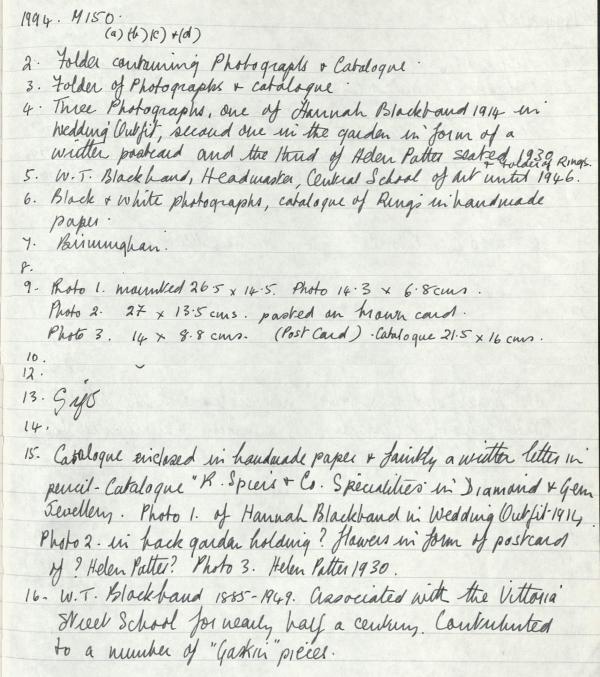 1994. M150.
(a) (b) (c) + (d)
2. Folder containing Photographs + Catalogue.
3. Folder of Photographs + catalogue.
4. Three Photographs, one of Hannah Blackband 1914 in
Wedding Outfit, second one in the garden in form of a
written postcard and the third of Helen Potter seated 1930
+ folder of Rings.
5. W.T. Blackband, Headmaster, Central School of Art until 1946.
6. Black + White photographs, catalogue of Rings in handmade
paper.
7. Birmingham.
8.
9. Photo 1. mounted 26.5 x 14.5. Photo 14.3 x 6.8 cms.
Photo 2. 27 x 13.5 cms. pasted on brown card.
Photo 3. 14 x 8.8 cms. (Post Card). Catalogue 21.5 x 16 cms.
10.
12.
13. Gift
14.
15. Catalogue enclosed in handmade paper + faintly a written letter in
pencil - Catalogue "R. Spiers + Co. Specialities in Diamond + Gem
Jewellery. Photo 1. of Hannah Blackband in Wedding Outfit 1914
Photo 2. in back garden holding ? flowers in form of postcard
of ? Helen Potter? Photo 3. Helen Potter 1930.
16. W.T. Blackband 1885-1949. Associated with the Vittoria
Street School for nearly half a century. Contributed
to a number of "Gaskin" pieces.